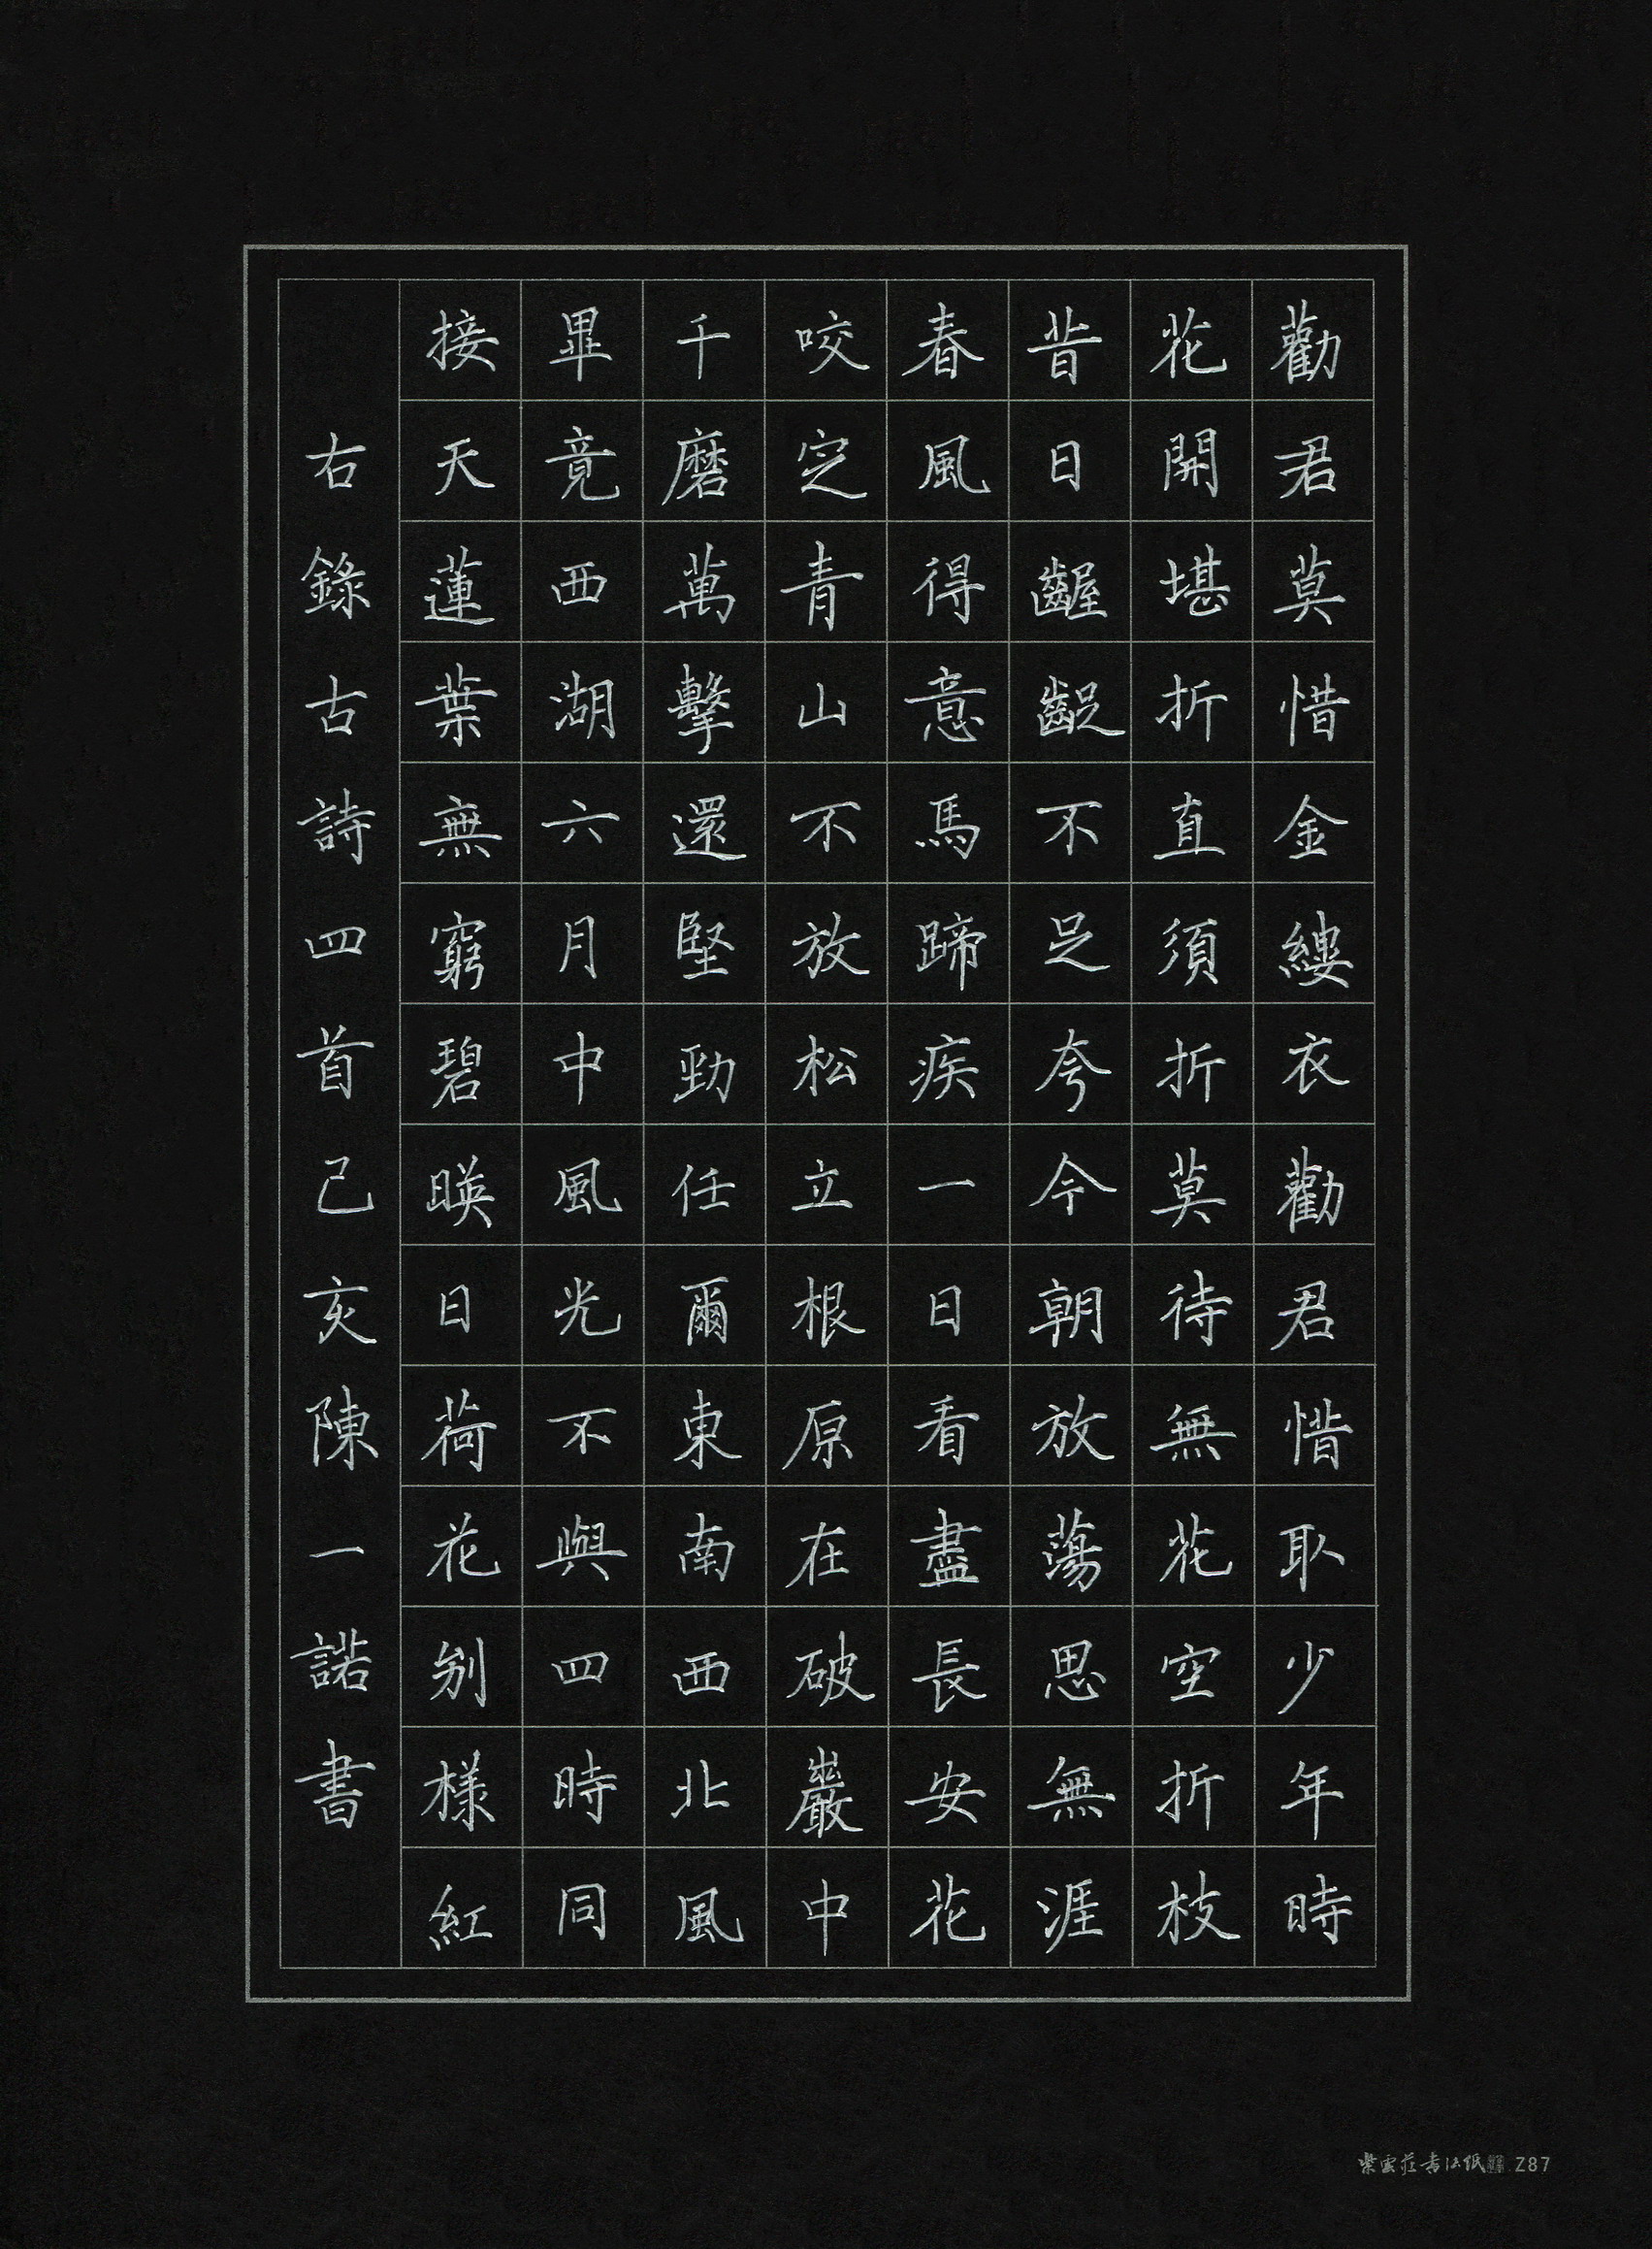 勸君莫惜金縷衣勸君惜取少年時
花開堪折直須折莫待無花空折枝
昔日齷齪不足夸今朝放蕩思無涯
春風得意馬蹄疾一日看盡長安花
咬定青山不放松立根原在破巖中
千磨萬擊還堅勁任爾東南西北風
畢竟西湖六月中風光不與四時同
接天蓮葉無窮碧暎日荷花别樣紅
右錄古詩四首己亥陳一諾書
紫雲莊書法紙 Z87